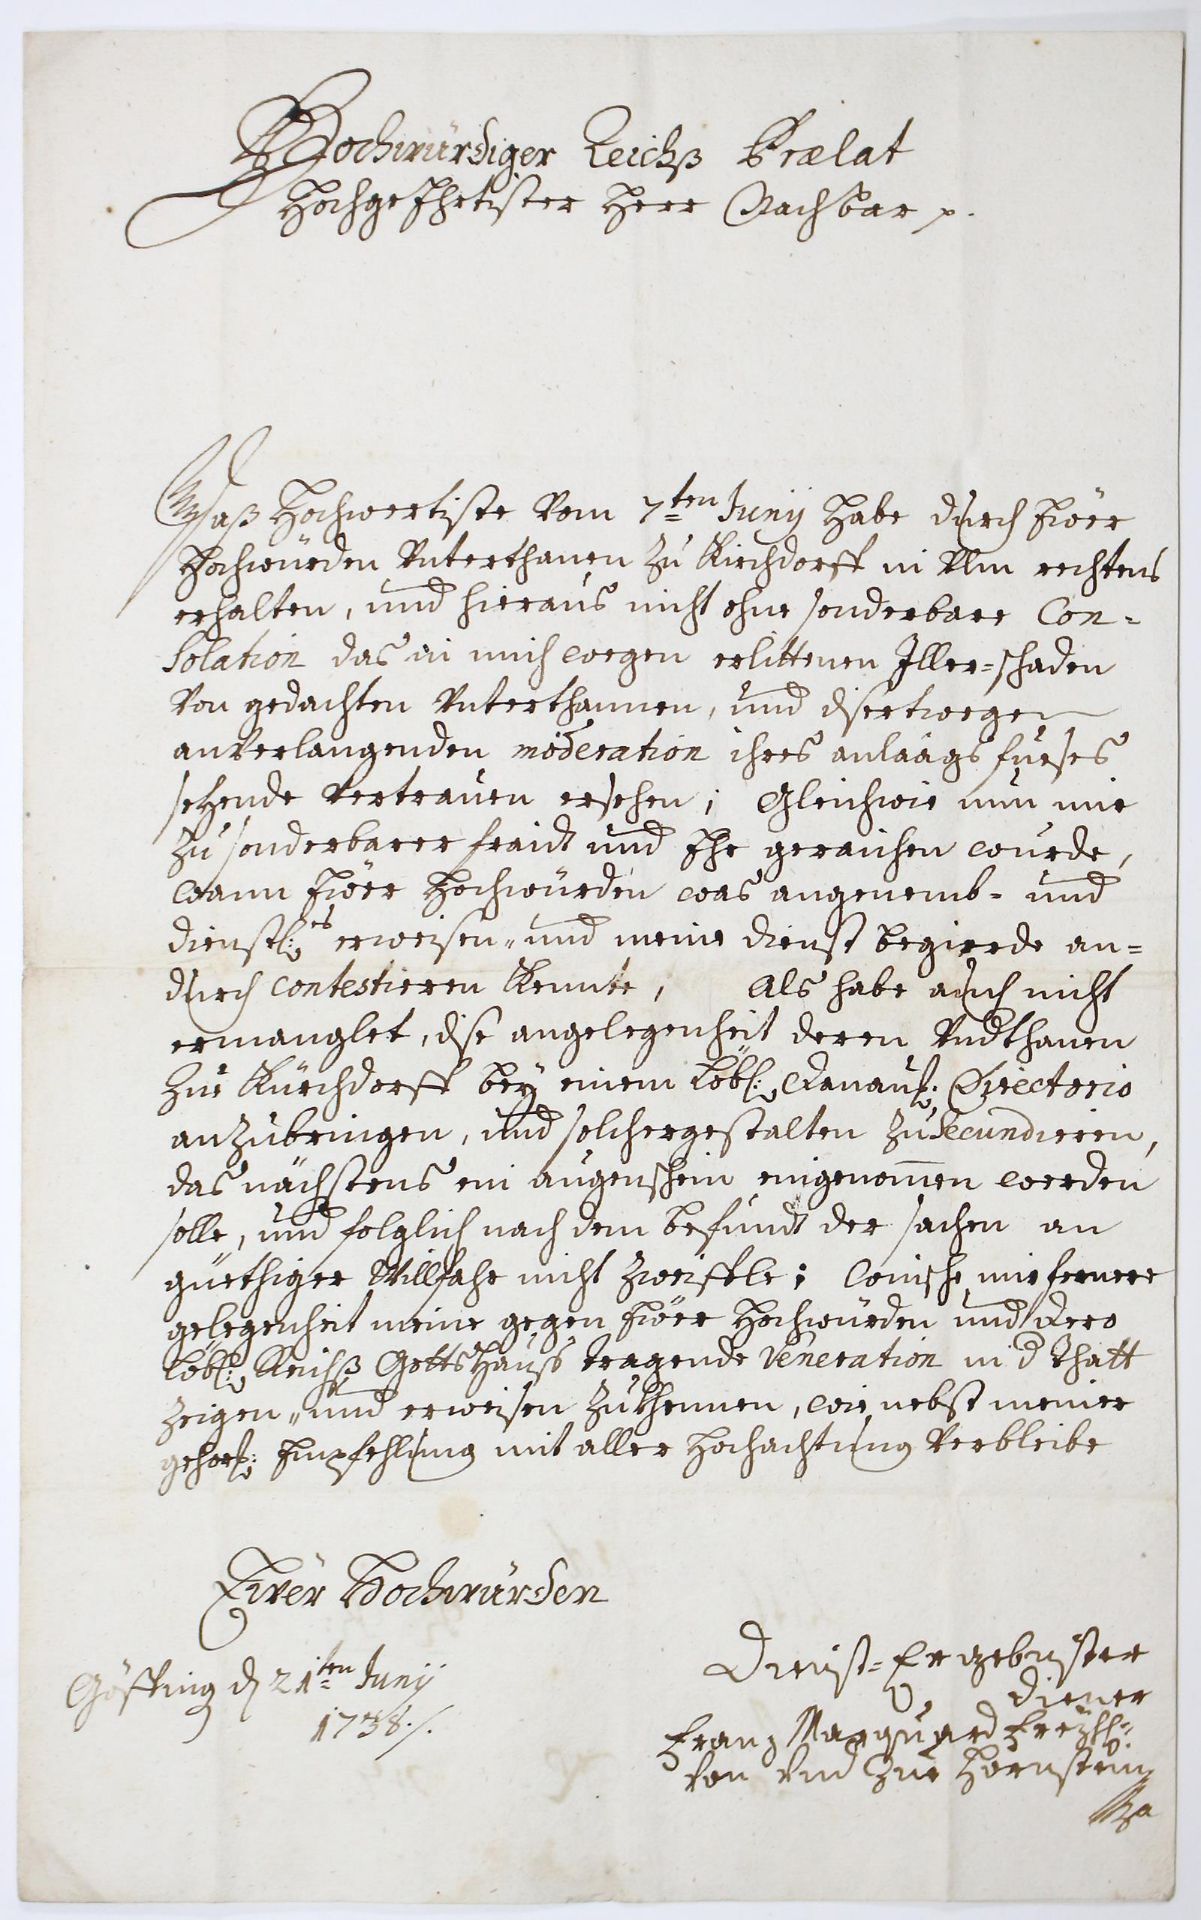 Hochwürdiger Reichß Prælat
Hochgeehrtister Herr Nachbar p.
Daß Hochwertiste vom 7ten Junij habe durch Eüer
Hochwürden Vnterthanen zu Kirchdorff in Ulm rechtens
erhalten, und hieraus nicht ohne sonderbare Con-
solation das in mich wegen erlittenen Iller-schaden
von gedachten Vnterthannen, und disertwegen
anverlangenden moderation ihres anlaags fueses
setzende Vertrauen ersehen; Gleichwie nun mir
zu sonderbarer fraidt und Ehr geraichen wurde,
wann Eüer Hochwürden was angenemb- und
dienstl:es erweisen- und meine dienst begierde an-
durch contestieren kennte, Als habe auch nicht
ermanglet, dise angelegenheit deren Vndthanen
zu Kürchdorff bey einem löbl: Donauß: Directorio
anzubringen, und solchergestalten zu secundieren,
das nächstens ein augenschein eingenommen werden
solle, und folglich nach dem befundt der sachen an
güethiger Willfahr nicht zweiffle; Wünsche mir fernere
gelegenheit meine gegen Eüer Hochwürden und dero
löbl: Reichß Gottshauß tragende Veneration in d that
zeigen- und erweisen zu khennen, wie nebst meiner
gehors: Empfehlung mit aller Hochachtung verbleibe
Eüer Hochwürden
Göffing d 21ten Junij
1738./.
Dienst-Ergebnister
diener
Franz Marquard Freyh:
von und zue Hornstein